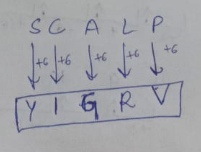 S C A L P
+6 +6 +6 +6 +6
Y I G R V